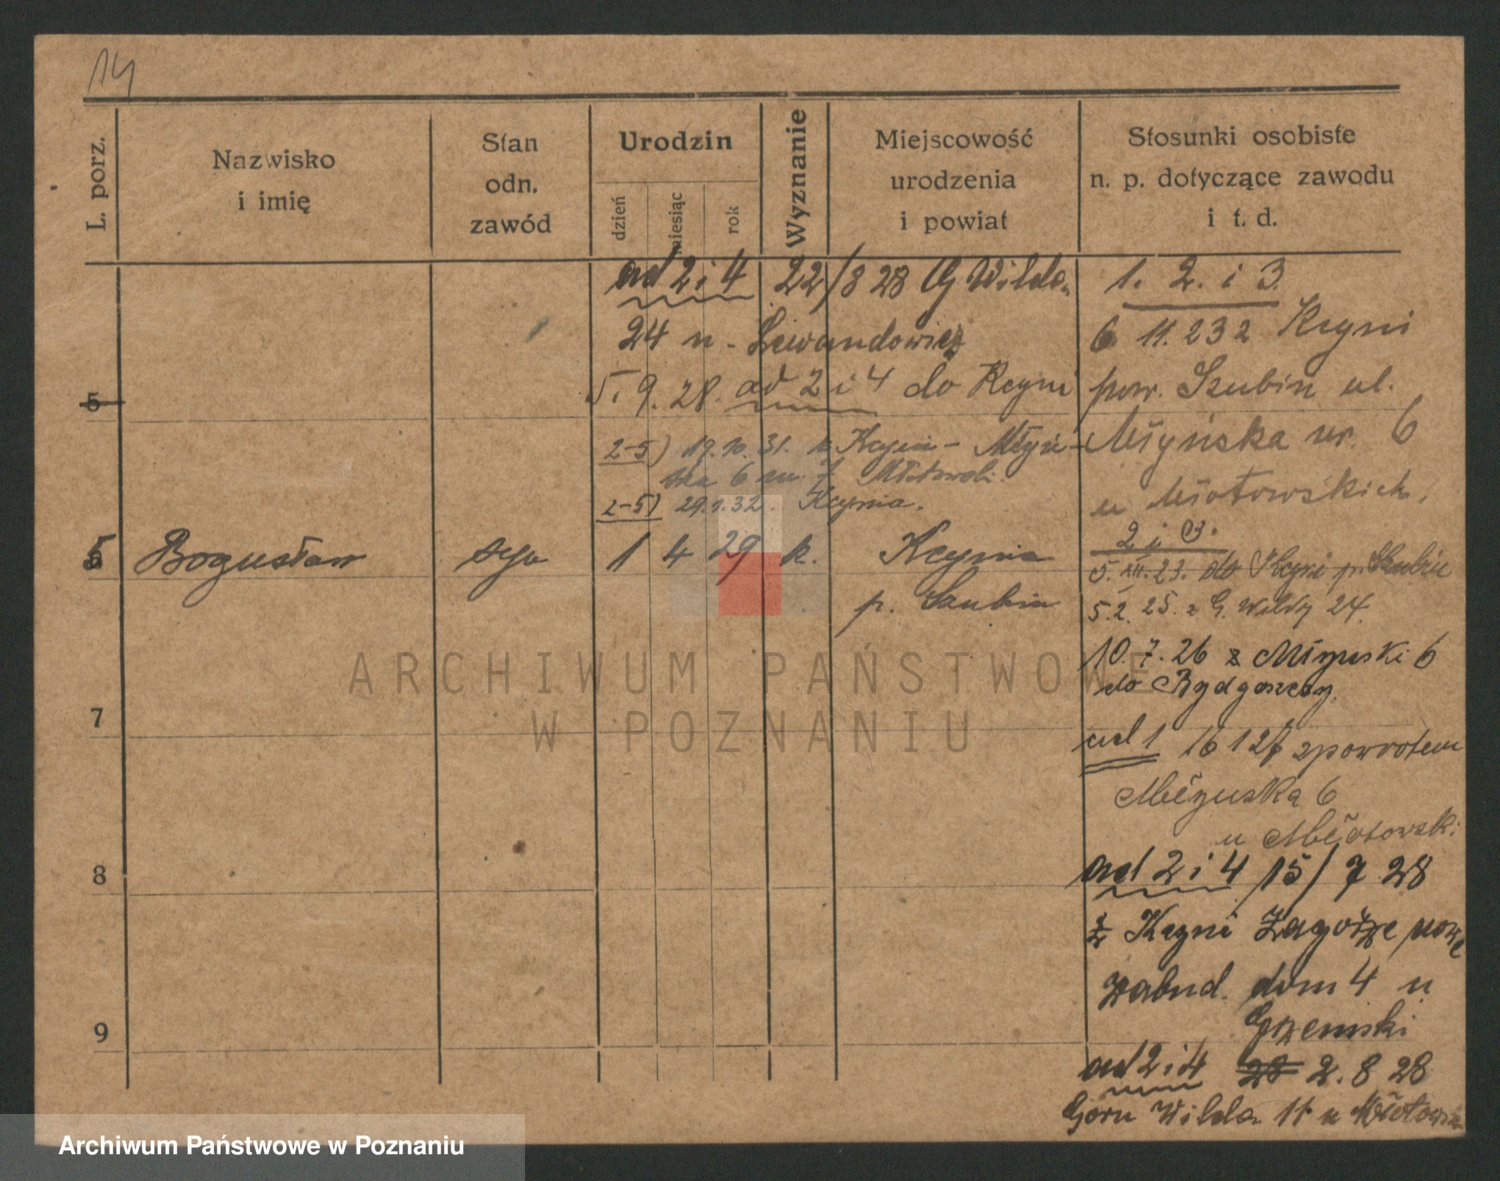 14
L. porz.
Nazwisko
i imię
Stan
odn.
zawód
Urodzin
dzień
miesiąc
rok
Wyznanie
Miejscowość
urodzenia
i powiat
Stosunki osobiste
n. p. dotyczące zawodu
i t. d.
ad 2 i 4 22/8 28 G Wilda
24 u Lewandowicz
5. 9. 28. ad 2 i 4 do Kcyni
2-5) 19.10.31. Kcynia - Młyń-
ska 6
2-5) 29.1.32. Kcynia.
5
5 Bogusław syn 1 4 29 k. Kcynia
p. Szubin
7
8
9
1. 2. i 3.
6 11.232 Kcyni
pow. Szubin ul.
Młyńska nr. 6
u Młotowskich.
2 i 3.
5. XII. 23. do Kcyni p. Szubin
5.2.25. z G. Wildy 24.
10.7.26 z Młyński 6
do Bydgoszczy.
ad 1 16 1 27 zpowrotem
Młyńska 6
u Młotowski
ad 2 i 4 15/7 28
z Kcyni Zagórze nowe
zabud. dom 4 u
Grzemski
ad 2 i 4 28 2.8 28
Górn Wilda 11 u
ARCHIWUM PAŃSTWOWE
W POZNANIU
Archiwum Państwowe w Poznaniu